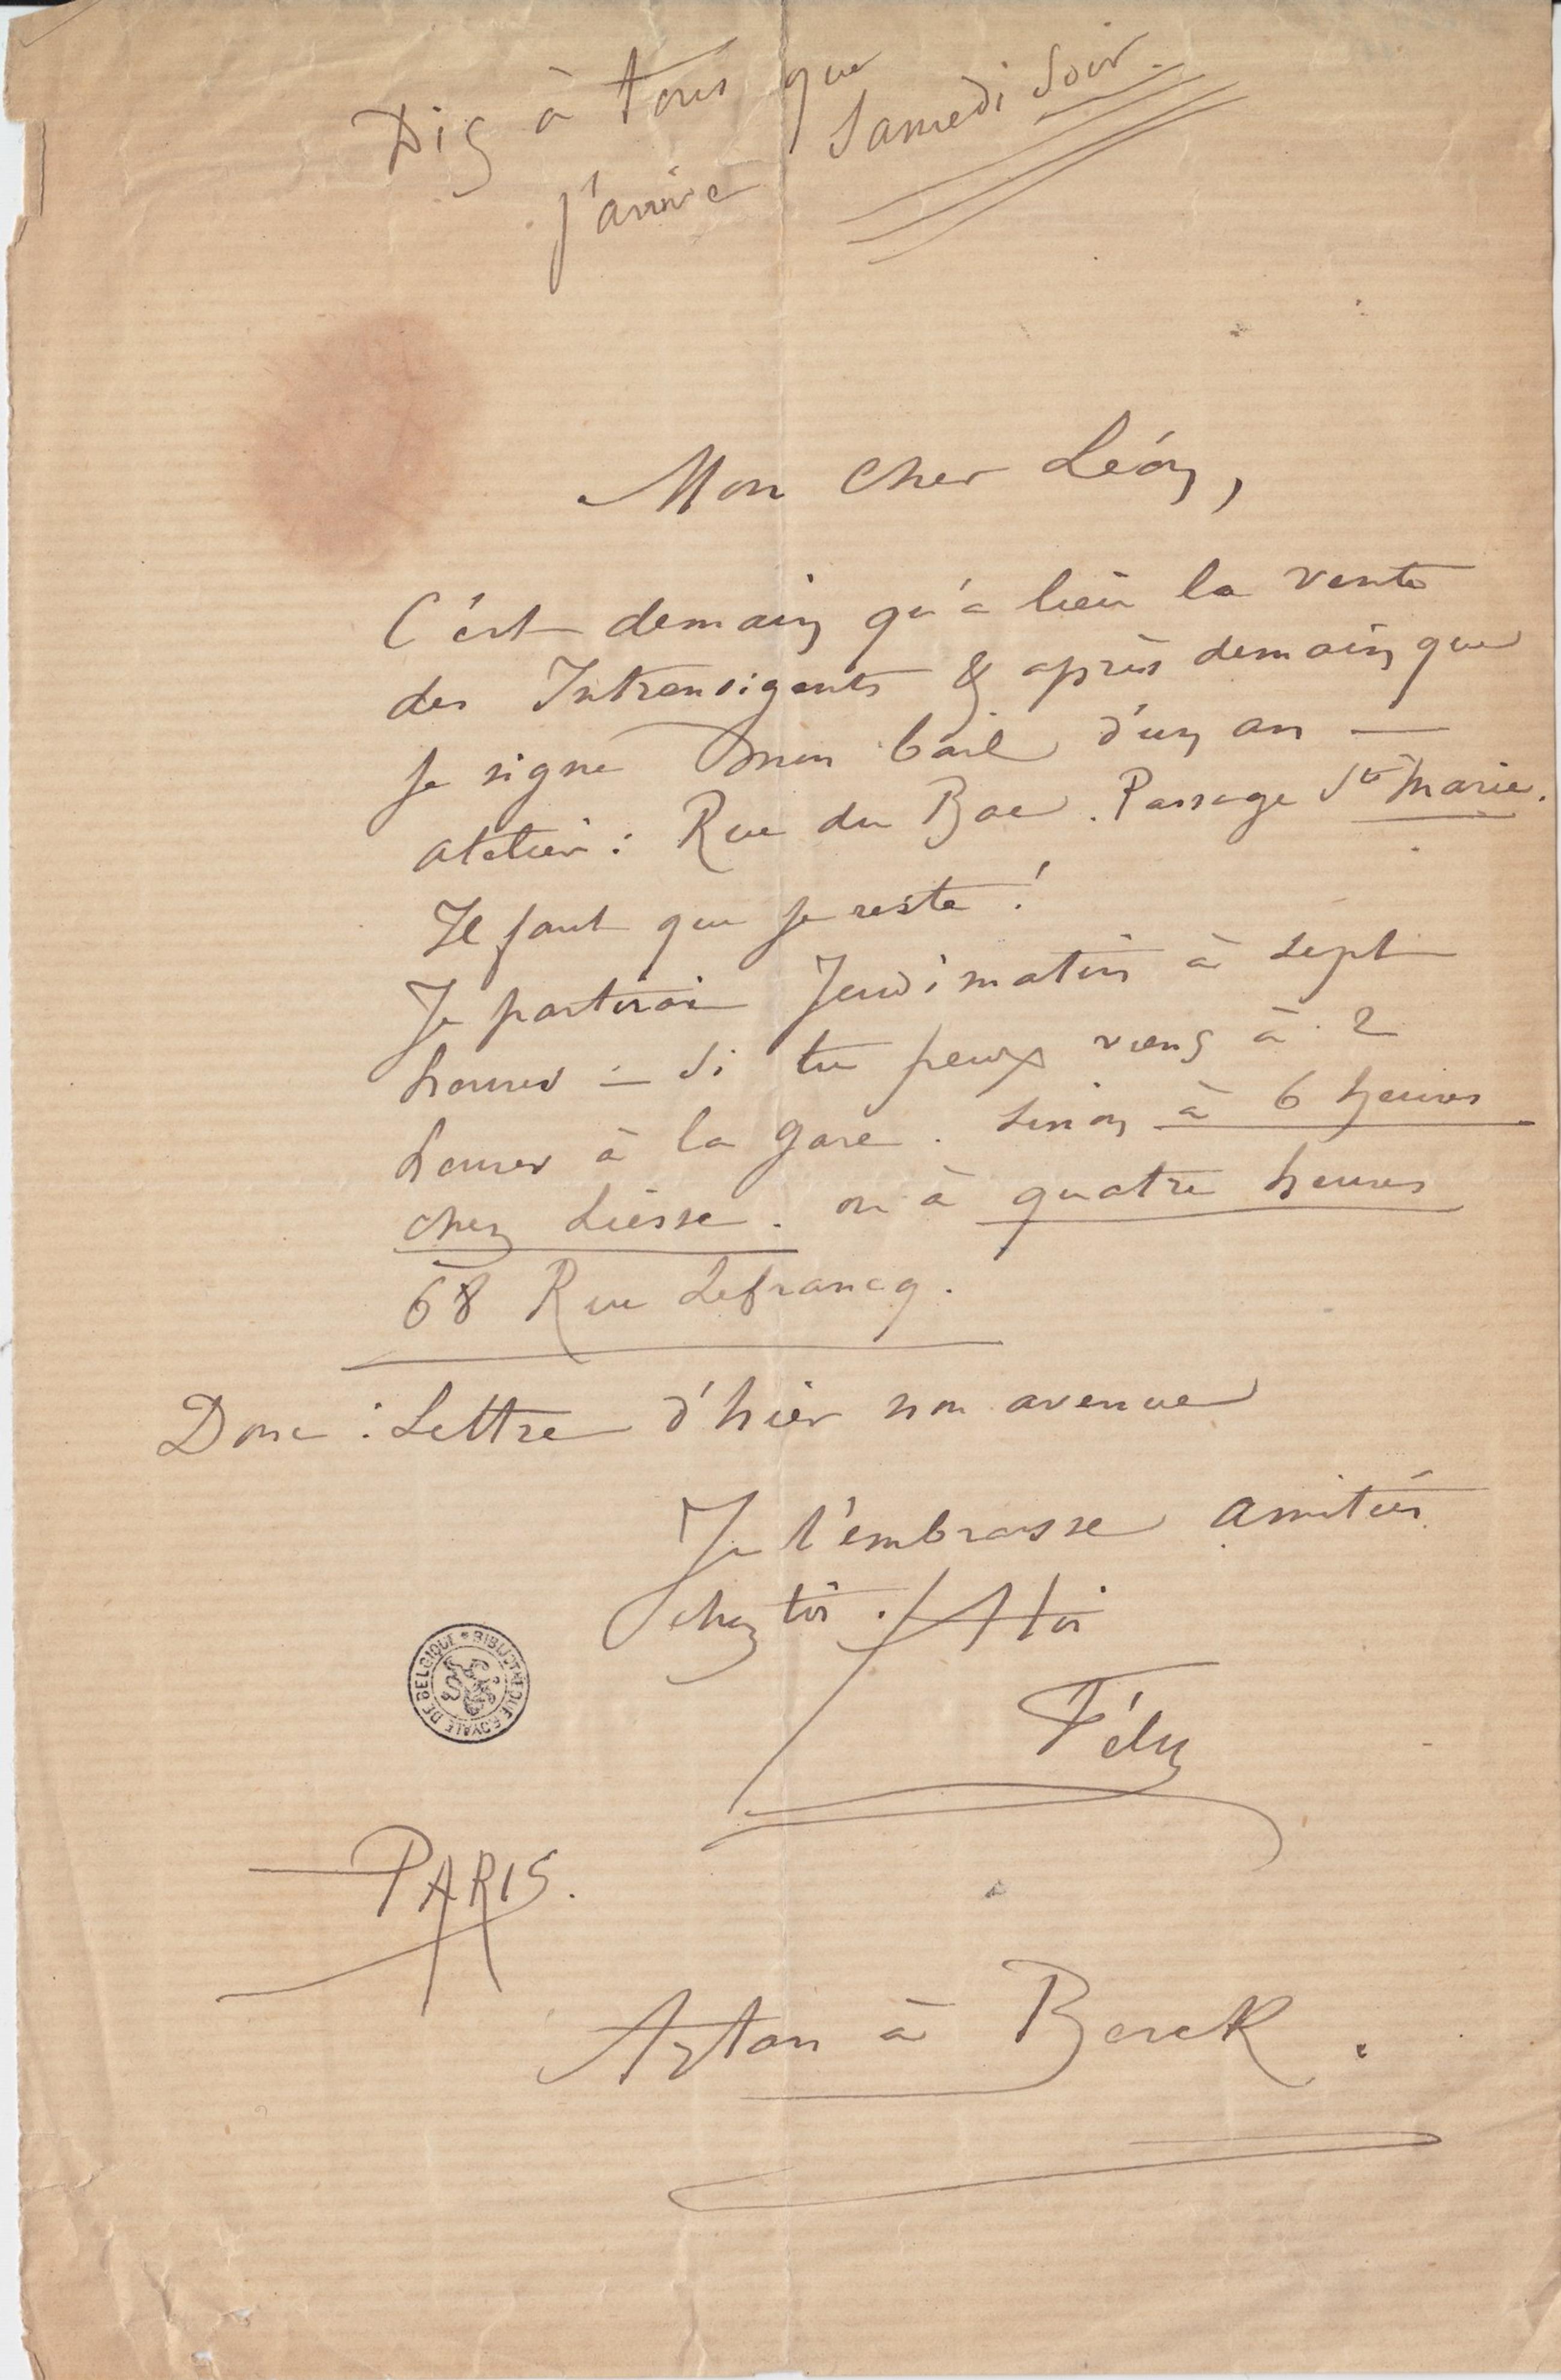 Dis à tous que
j'arrive Samedi Soir.
Mon cher Léon,
C'est demain qu'a lieu la vente
des Intransigants & après demain que
je signe mon bail d'un an —
atelier : Rue du Bac. Passage Ste Marie.
Il faut que je reste !
Je partirai Jeudi matin à sept
heures — si tu peux viens à 2
heures à la gare. Sinon à 6 heures
chez Liesse. ou à quatre heures
68 Rue Lefrancq.
Donc : Lettre d'hier non avenue
Je t'embrasse amitiés
chez toi. A toi
Fély
BIBLIOTHEQUE ROYALE DE BELGIQUE
PARIS.
Artan à Berck.